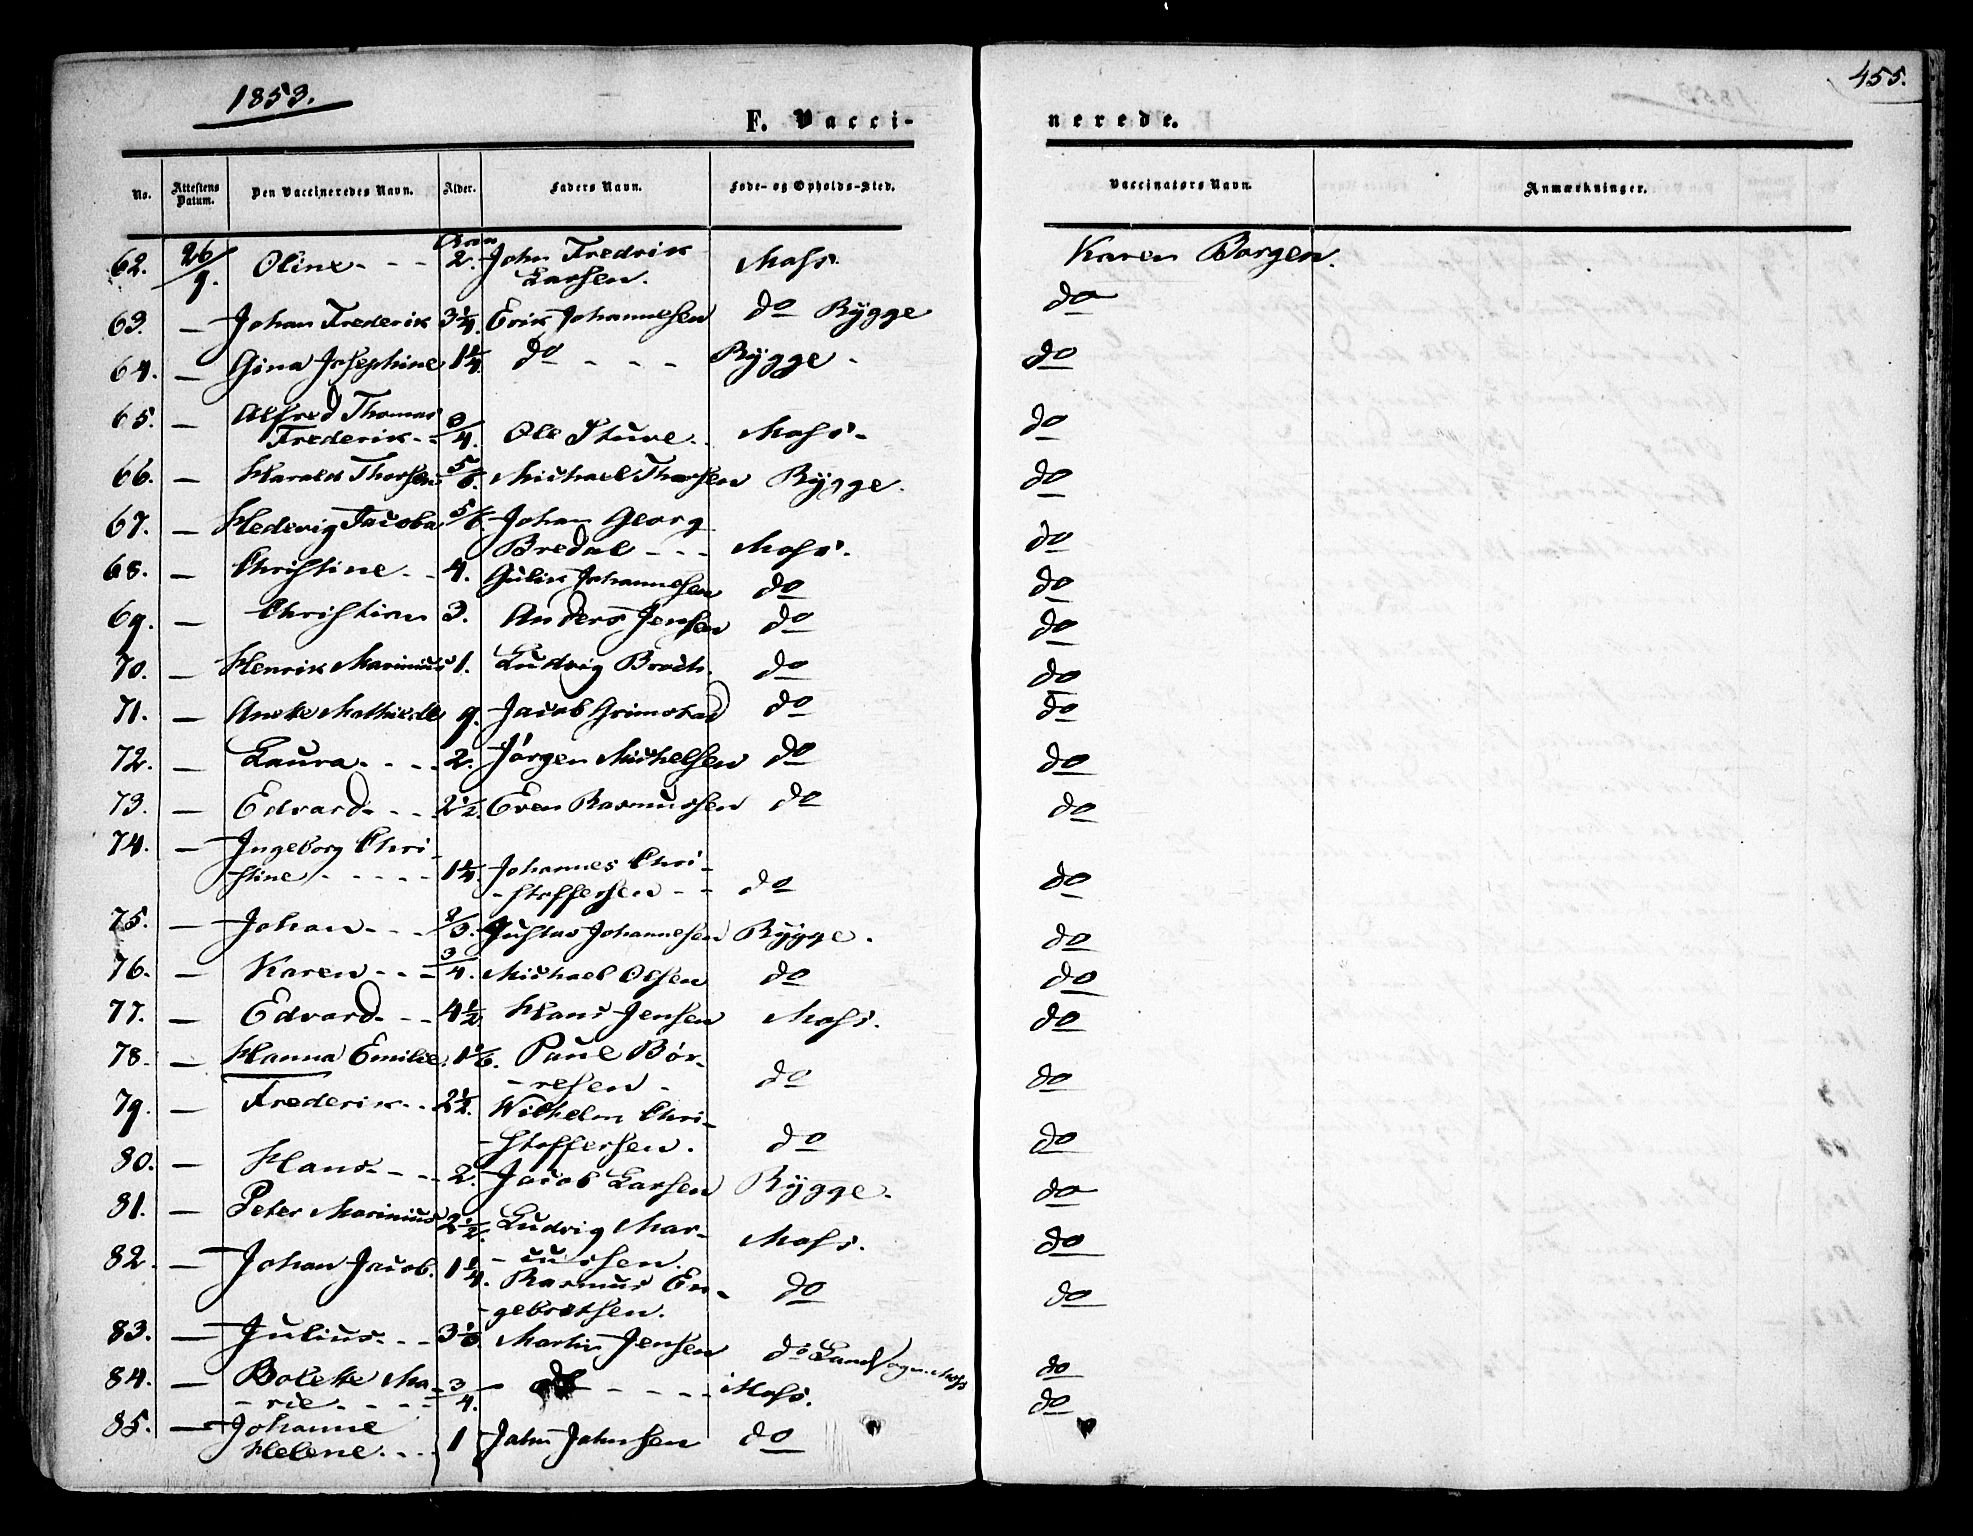 1853.
455.
F. Vacci-
nerede.
No. Attestens Datum. Den Vaccineredes Navn. Alder. Faders Navn. Føde- og Opholds-Sted. Vaccinators Navn. Anmærkninger.
62. 26/9. Oline - - - 2. John Fredrik Larsen. Moss. Karen Borgen.
63. — Johan Frederik 3 1/4. Erik Johannesen do Rygge do
64. — Gina Josephine 1 1/4. do - - - Rygge - do
65. — Alfred Thomas
Frederik - - 3/4. Ole Sture - Moss - do
66. — Harald Thorsen 5/6. Michael Thorsen Rygge. do
67. — Hedevig Jacoba 5/6. Johan Georg
Bredal - - - Moss. do
68. — Christine - - 4. Gulik Johannesen do do
69. — Christian 3. Anders Jensen do do
70. — Henrik Marinius 1. Ludvig Broch. do do
71. — Anette Mathilde 9. Jacob Grimstad do do
72. — Laura - - - - 2. Jørgen Michelsen do do
73. — Edvard - - - 2 1/2. Even Rasmussen do do
74. — Ingeborg Chri-
stine - - - - - 1 1/4. Johannes Chri-
-stoffersen - - do do
75. — Johan - - - 2/3. Gustav Johannesen Rygge. do
76. — Karen - - - 3/4. Michael Olsen do do
77. — Edvard - - - 4 1/2 Hans Jensen Moss. do
78. — Hanna Emilie. 1 1/6. Paul Bør-
-resen - do do
79. — Frederik - - 2 1/2. Wilhelm Chri-
-stoffersen. do do
80. — Hans - - - 2. Jacob Larsen Rygge. do
81. — Peter Marinius 2 1/2. Ludvig Mar-
-cussen. Moss. do
82. — Johan Jacob. 1 1/4. Rasmus En-
-gebretsen. do do
83. — Julius - - - 3 1/3. Martin Jensen do Landsogn Moss do
84. — Bolette Ma-
-rie - - - - - 3/4. do - - - - Moss. do
85. — Johanne
Helene - - - 1 John Johnsen do